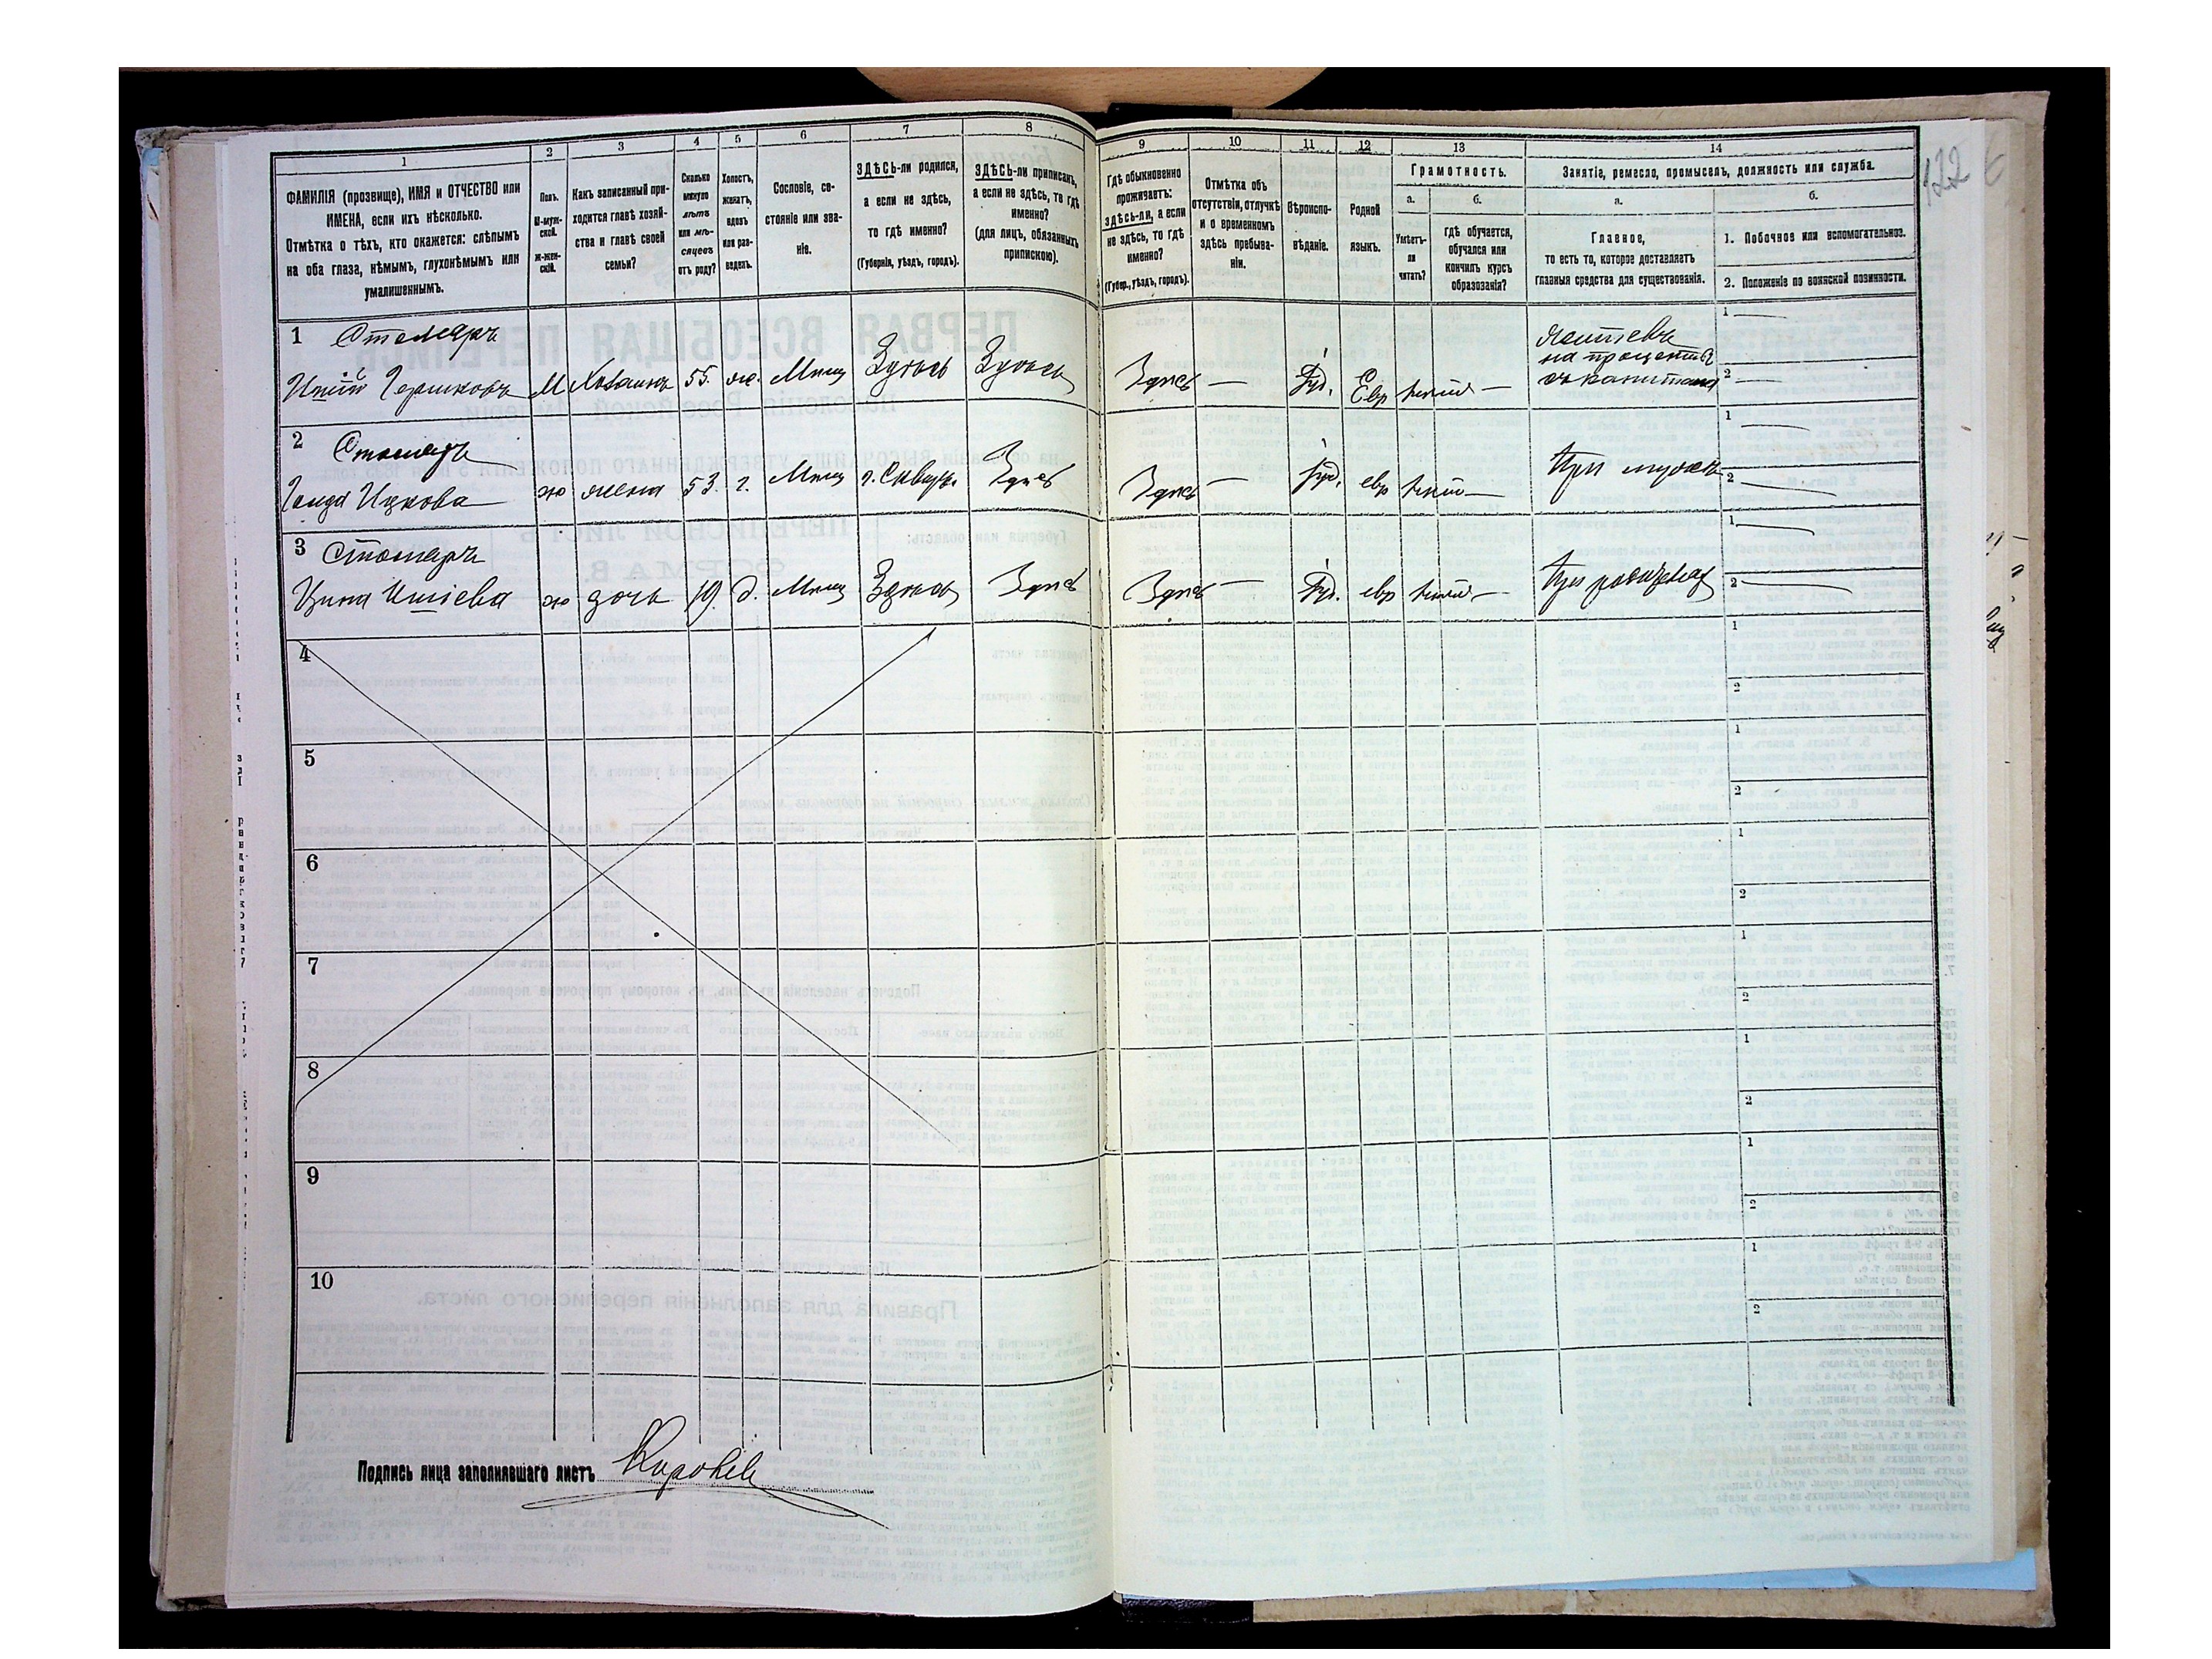 1
2
3
4
5
6
7
8
ФАМИЛІЯ (прозвище), ИМЯ и ОТЧЕСТВО или
ИМЕНА, если ихъ нѣсколько.
Отмѣтка о тѣхъ, кто окажется: слѣпымъ
на оба глаза, нѣмымъ, глухонѣмымъ или
умалишеннымъ.
Полъ.
М-муж-
ской.
Ж-жен-
скій.
Какъ записанный при-
ходится главѣ хозяй-
ства и главѣ своей
семьи?
Сколько
минуло
лѣтъ
или мѣ-
сяцевъ
отъ роду?
Холостъ,
женатъ,
вдовъ
или раз-
веденъ.
Сословіе, со-
стояніе или зва-
ніе.
ЗДѢСЬ-ли родился,
а если не здѣсь,
то гдѣ именно?
(Губернія, уѣздъ, городъ).
ЗДѢСЬ-ли приписанъ,
а если не здѣсь, то гдѣ
именно?
(для лицъ, обязанныхъ
припискою).
9
10
11
12
13
14
Гдѣ обыкновенно
проживаетъ:
здѣсь-ли, а если
не здѣсь, то гдѣ
именно?
(Губер., уѣздъ, городъ).
Отмѣтка объ
отсутствіи, отлучкѣ
и о временномъ
здѣсь пребыва-
ніи.
Вѣроиспо-
вѣданіе.
Родной
языкъ.
Грамотность.
а.
б.
Умѣетъ-
ли
читать?
гдѣ обучается,
обучался или
кончилъ курсъ
образованія?
Занятіе, ремесло, промыселъ, должность или служба.
а.
б.
Главное,
то есть то, которое доставляетъ
главныя средства для существованія.
1. Побочное или вспомогательное.
2. Положеніе по воинской повинности.
122
1 Столяръ
М Хозяинъ 55. ж. Мѣщ Здѣсь Здѣсь
Здѣсь — Іуд. Евр нѣтъ —
на проценты
съ капитала
1 —
2 —
2 Столяръ
Ицкова ж жена 53. Мѣщ г. Сквира Здѣсь
Здѣсь — Іуд. евр нѣтъ — При мужѣ
1 —
2 —
3 Столяръ
ж дочь 19. д. Мѣщ Здѣсь Здѣсь
Здѣсь — Іуд. евр нѣтъ — При родителяхъ
1 —
2 —
4
1
2
5
1
2
6
1
2
7
1
2
8
1
2
9
1
2
10
1
2
Подпись лица заполнявшаго листъ